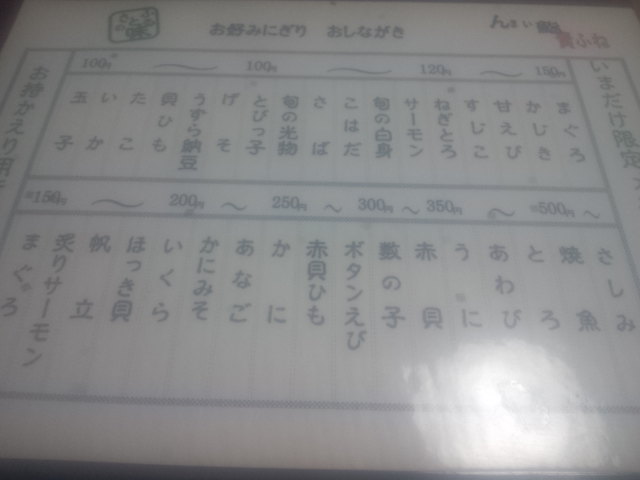 お好みにぎり おしながき
んまい鮨
貴ふね
いまだけ限定
100円 〜 100円 〜 120円 〜 150円
まぐろ
かじき
甘えび
すじこ
ねぎとろ
サーモン
旬の白身
こはだ
さば
旬の光物
とびっ子
げそ
うずら納豆
貝ひも
たこ
いか
玉子
150円 〜 200円 〜 250円 〜 300円 〜 350円 〜 500円 〜
さしみ
焼魚
とろ
あわび
うに
赤貝
数の子
ボタンえび
赤貝ひも
かに
あなご
かにみそ
いくら
ほっき貝
帆立
炙りサーモン
まぐろ
お持かえり用